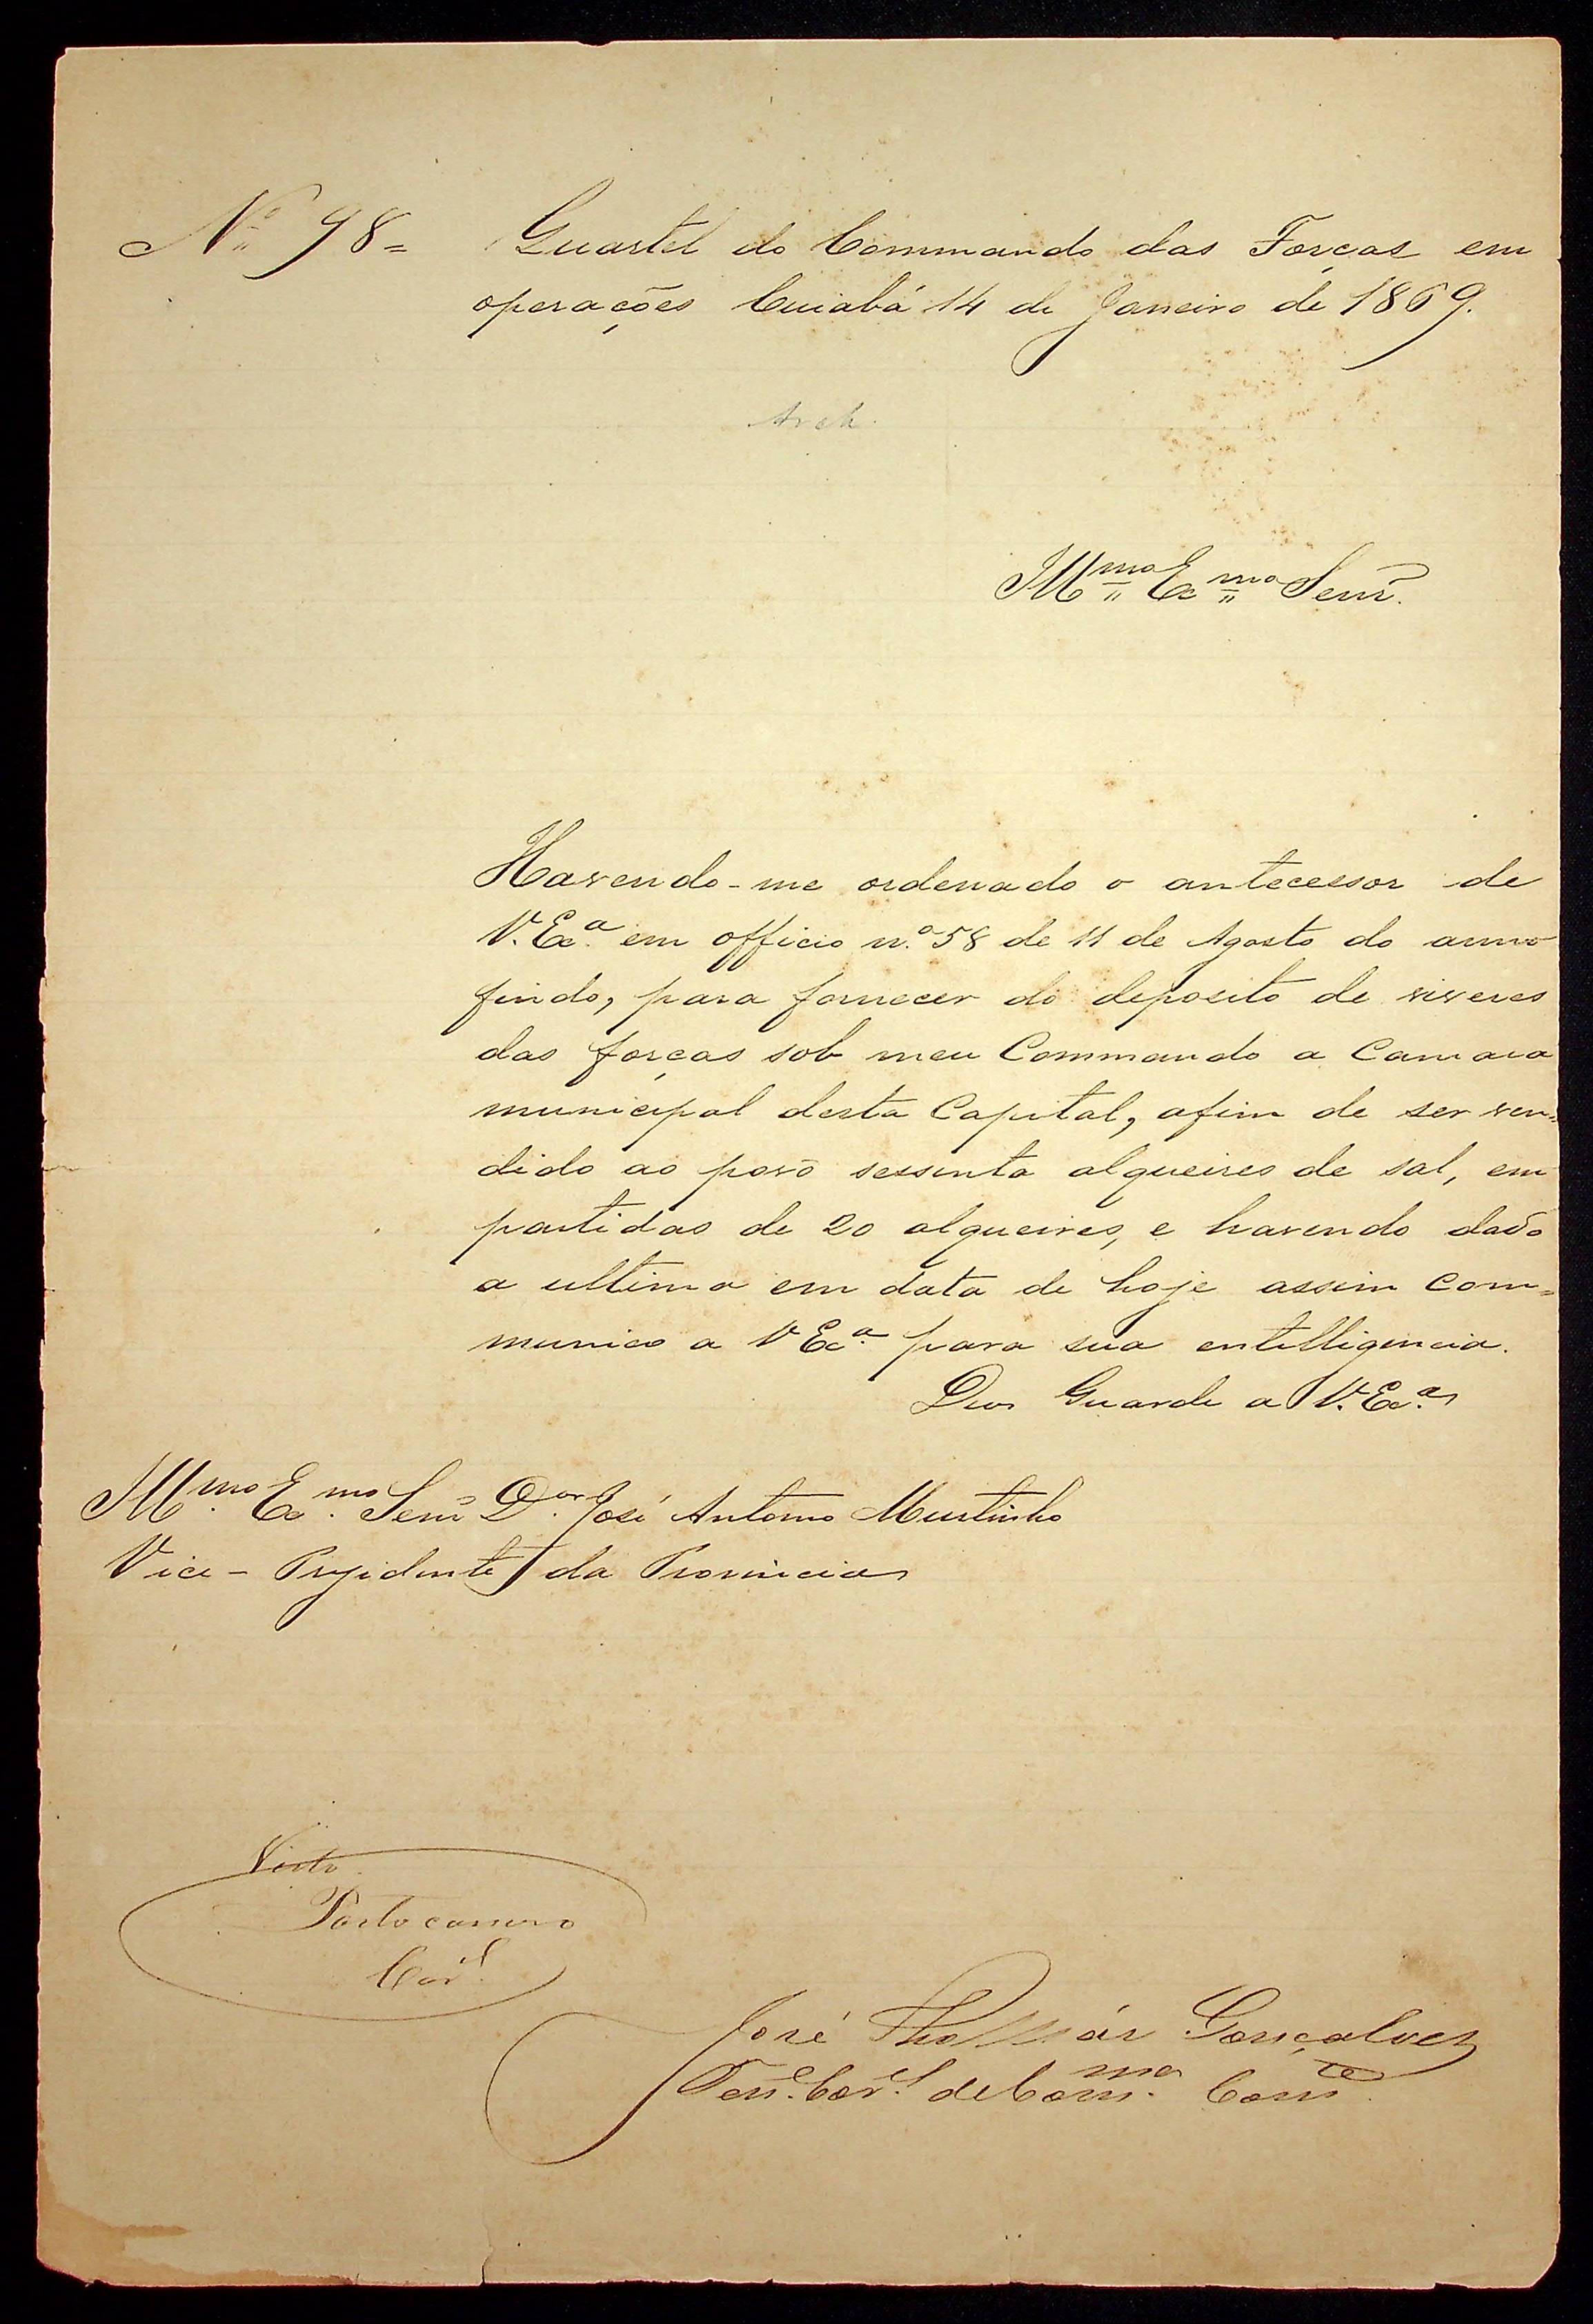 Nº 98=
Quartel do Commando das Forças em
operações Cuiabá 14 de Janeiro de 1869.
Arch.
Illmo Exmo Senr.
Havendo-me ordenado o antecessor de
V. Exa. em officio n.º 58 de 11 de Agosto do anno
findo, para fornecer do deposito de viveres
das forças sob meu Commando a Camara
municipal desta Capital, afim de ser ven=
dido ao povo sessenta alqueires de sal, em
partidas de 20 alqueires, e havendo dado
a ultima em data de hoje assim com=
munico a V Exa. para sua entelligencia.
Deos Guarde a V. Exa.
Illmo. Exmo. Senr Dor. José Antonio Murtinho
Vice-Prezidente da Provincia
Visto
Portocarrero
Corl.
José Gonçalves
Tene. Corl. de Comm. Comte.